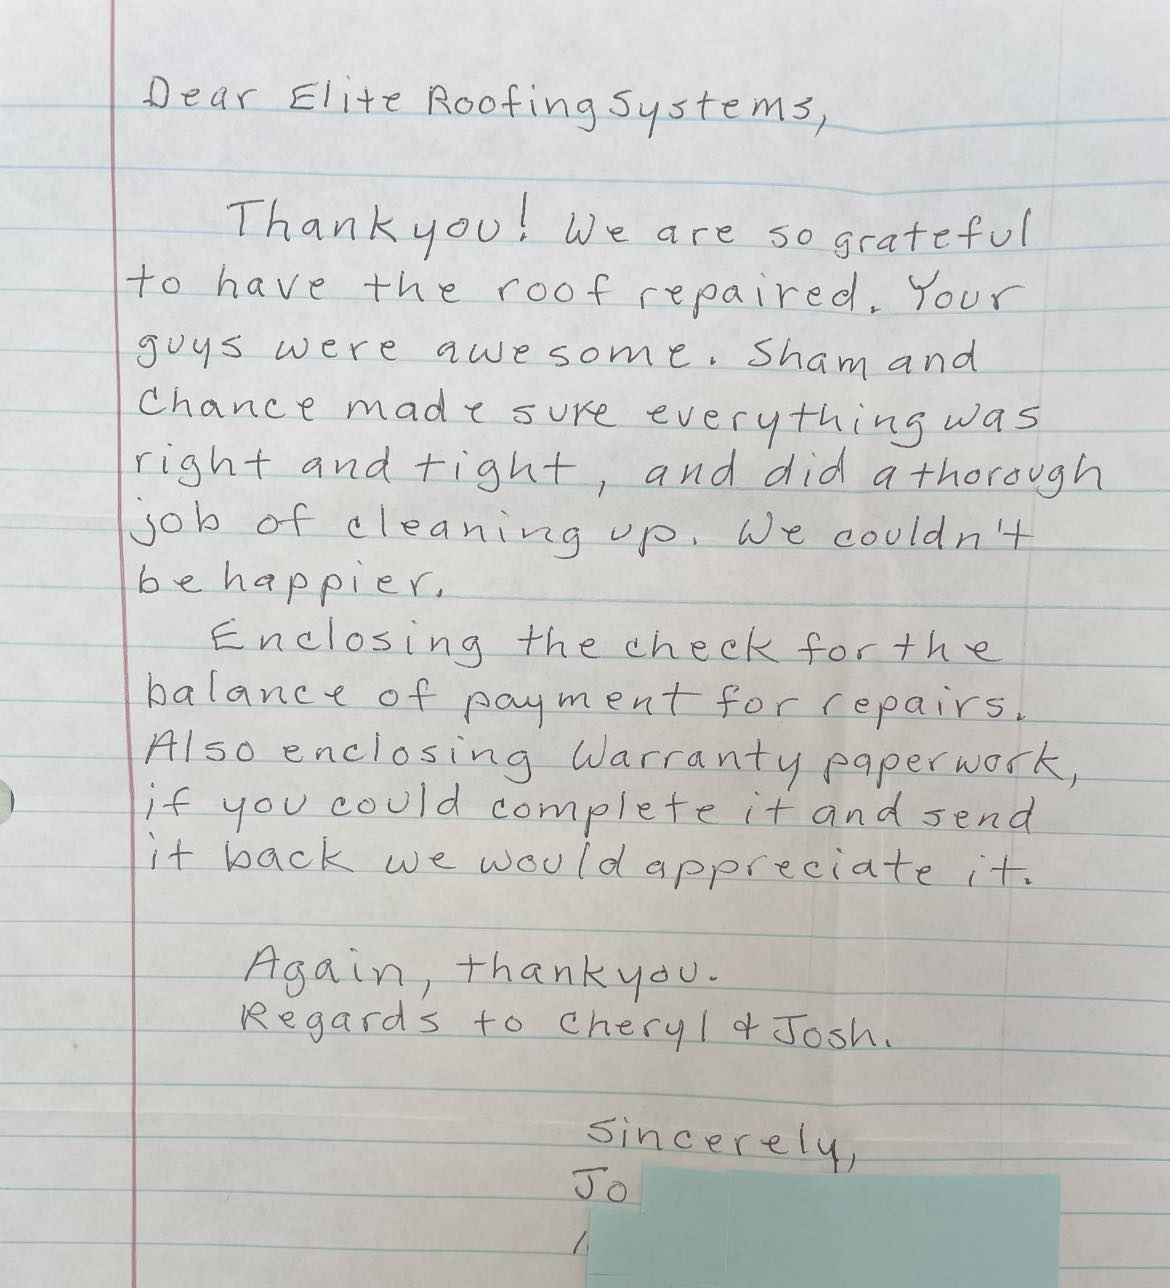 Dear Elite Roofing Systems,
Thank you! We are so grateful
to have the roof repaired. Your
guys were awesome. Sham and
Chance made sure everything was
right and tight, and did a thorough
job of cleaning up. We couldn't
be happier.
Enclosing the check for the
balance of payment for repairs.
Also enclosing Warranty paperwork,
if you could complete it and send
it back we would appreciate it.
Again, thank you.
Regards to Cheryl & Josh.
Sincerely,
Jo